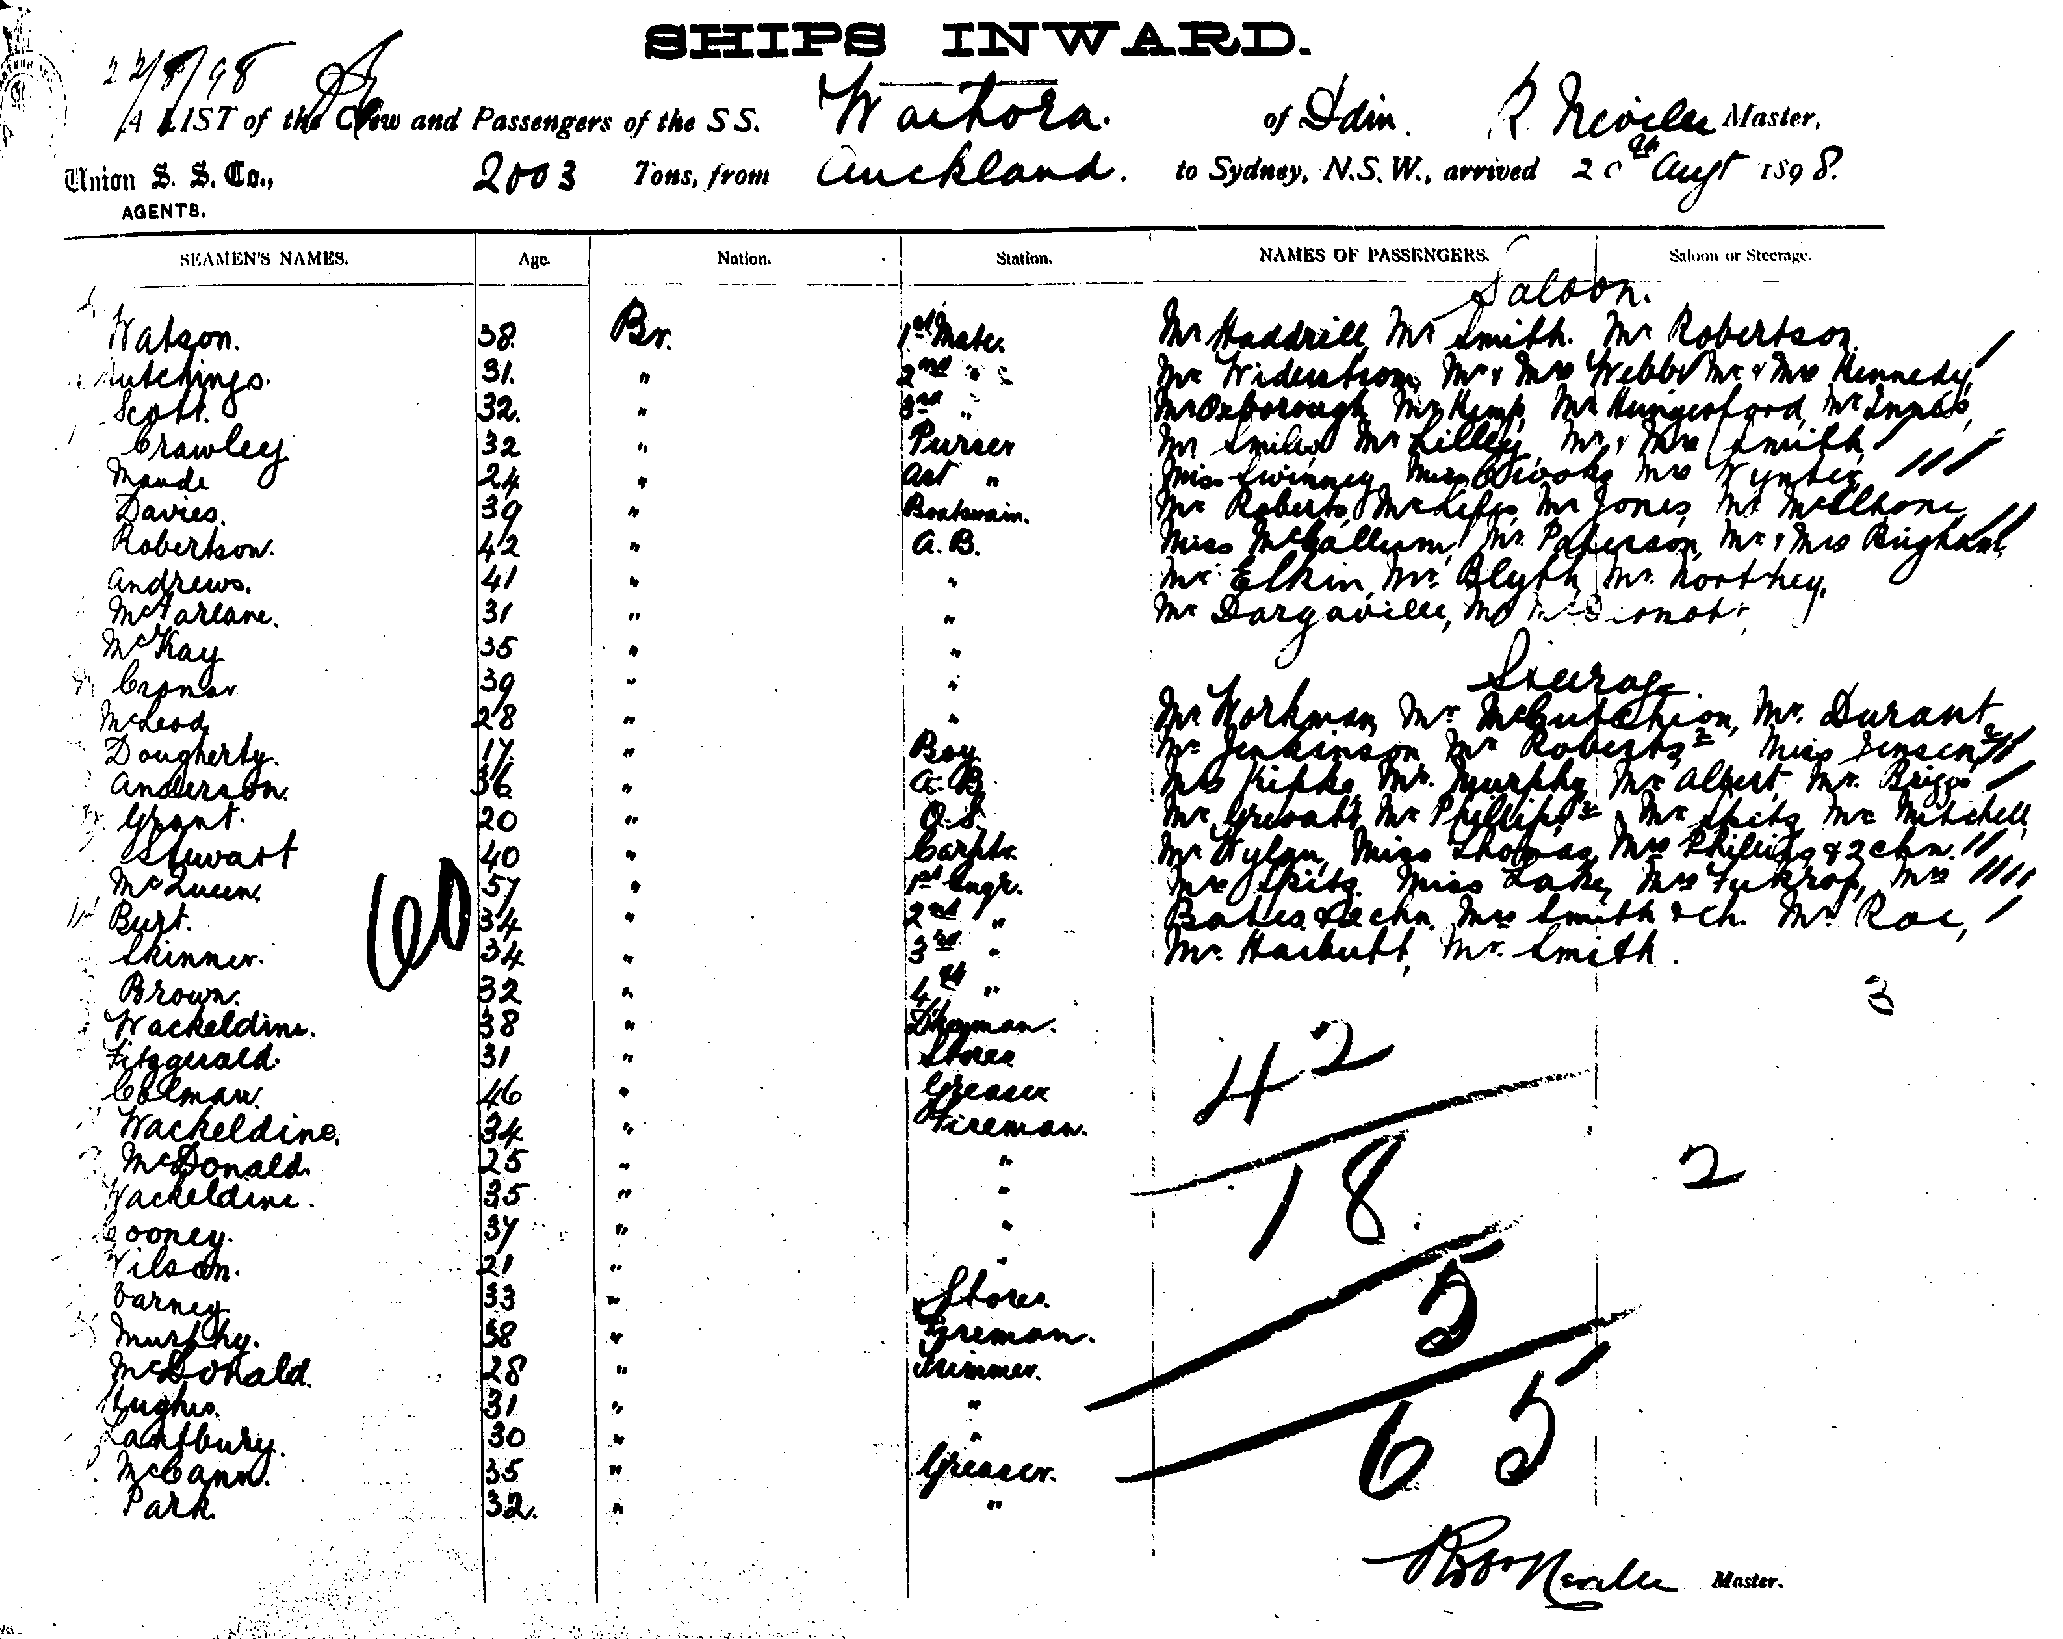 SHIPS INWARD.
22/8/98
A LIST of the Crew and Passengers of the SS. Waihora. of Ddin. R. Neville Master,
Union S. S. Co., 2003 Tons, from Auckland. to Sydney, N.S.W., arrived 20th Augt 1898.
AGENTS.
SEAMEN'S NAMES. Age. Nation. Station. NAMES OF PASSENGERS. Saloon or Steerage.
Saloon.
Watson. 38. Br. 1st Mate. Mr Haddrill, Mr Smith. Mr Robertson
Hutchings. 31. " 2nd " Mr Widerstrom, Mr & Mrs Webb Mr & Mrs Kennedy,
Scott. 32. " 3rd " Mr Oxborough Mr Kemp, Mr Hungerford, Mr Innes,
Crawley 32 " Purser Mr Smiles, Mr Lilley, Mr & Mrs Smith,
Maude 24 " Ast " Miss Swinney Miss Brooks Mrs Wynter,
Davies. 39 " Boatswain. Mr Roberts, Mr Jones, Mr McElhone,
Robertson. 42 " A. B. Miss McCallum, Mr Paterson, Mr & Mrs Bingham,
Andrews. 41 " " Mr Elkin, Mr Blyth, Mr Northey.
McFarlane. 31 " " Mr Dargaville, McDermott,
McKay 35 " "
39 " " Steerage.
McLeod 28 " " Mr Workman, Mr McCutchion, Mr. Durant
Dougherty. 17. " Boy Mr Jenkinson Mr Roberts 2 Miss Jensen,
Anderson. 36 " A. B. Mrs Mr. Murphy, Mr Albert, Mr. Briggs
Grant. 20 " O.S. Mr Mr Phillips 2, Mr Spitz Mr Mitchell,
Stewart 40 " Carptr. Mr Wylan, Miss Thomas, Mrs Phillips & 2 chn.
McQueen. 57 " 1st Engr. Mrs Spitz. Miss Lake, Mrs Mrs
Burt. 34 " 2nd " Bates & chn. Mrs Smith & ch. Mr Roe,
Skinner. 34 " 3rd " Mr. Harbutt, Mr. Smith.
60
Brown. 32 " 4th " 3
Wackeldine. 38 "
Fitzgerald. 31 " Stores
Colman. 46 " Greaser 42
Wackeldine. 34 " Fireman.
McDonald. 25 " " 18 2
Wackeldine. 35 " "
Cooney. 37 " "
Wilson. 21 " "
Varney 33 " Stores 5
Murphy. 38 " Fireman.
McDonald. 28 " Trimmer.
Hughes. 31 " "
30 " " 65
McCann. 35 " Greaser.
Park 32. " "
Robt Neville Master.